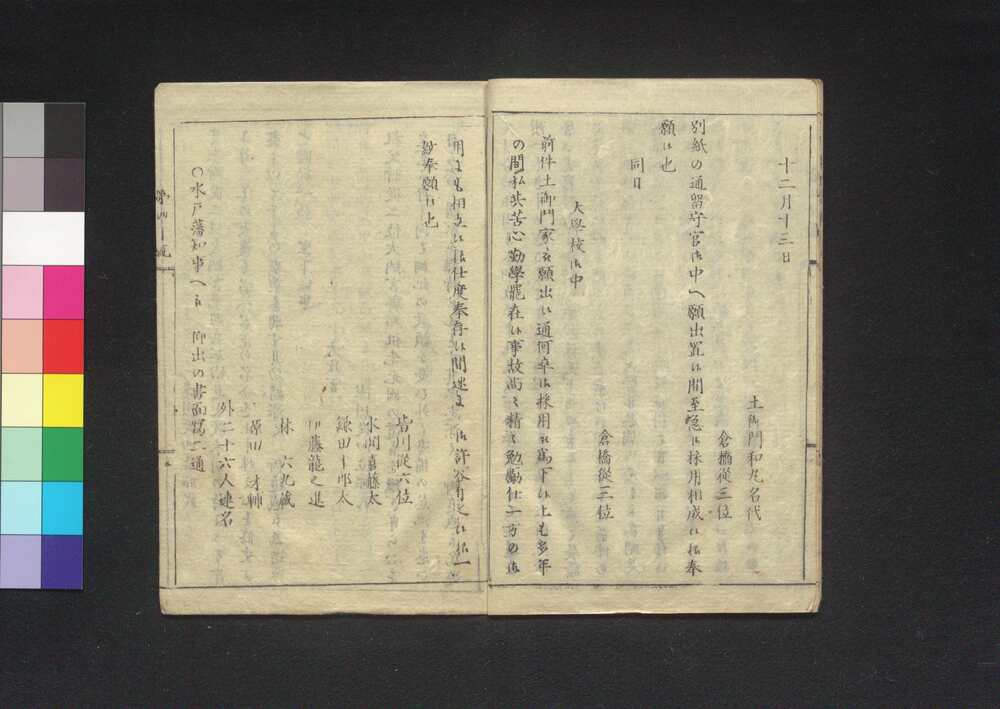 十二月十三日
土御門和丸名代
倉橋從三位
別紙の通留守官御中へ願出置候間至急御採用相成候様奉
願候也
同日
倉橋從三位
大學校御中
前件土御門家ゟ願出候通何卒御採用被爲下候上も多年
の間私共苦心勤學罷在候事故尚々精々勉勵仕一万の御
用にも相立候様仕度奉存候間速に御許容有之候様一
奉願候也
皆川從六位
水間直藤太
鎌田
伊藤龍之進
林 六九藏
外二十六人連名
〇水戸藩知事へ被 仰出の書面寫二通